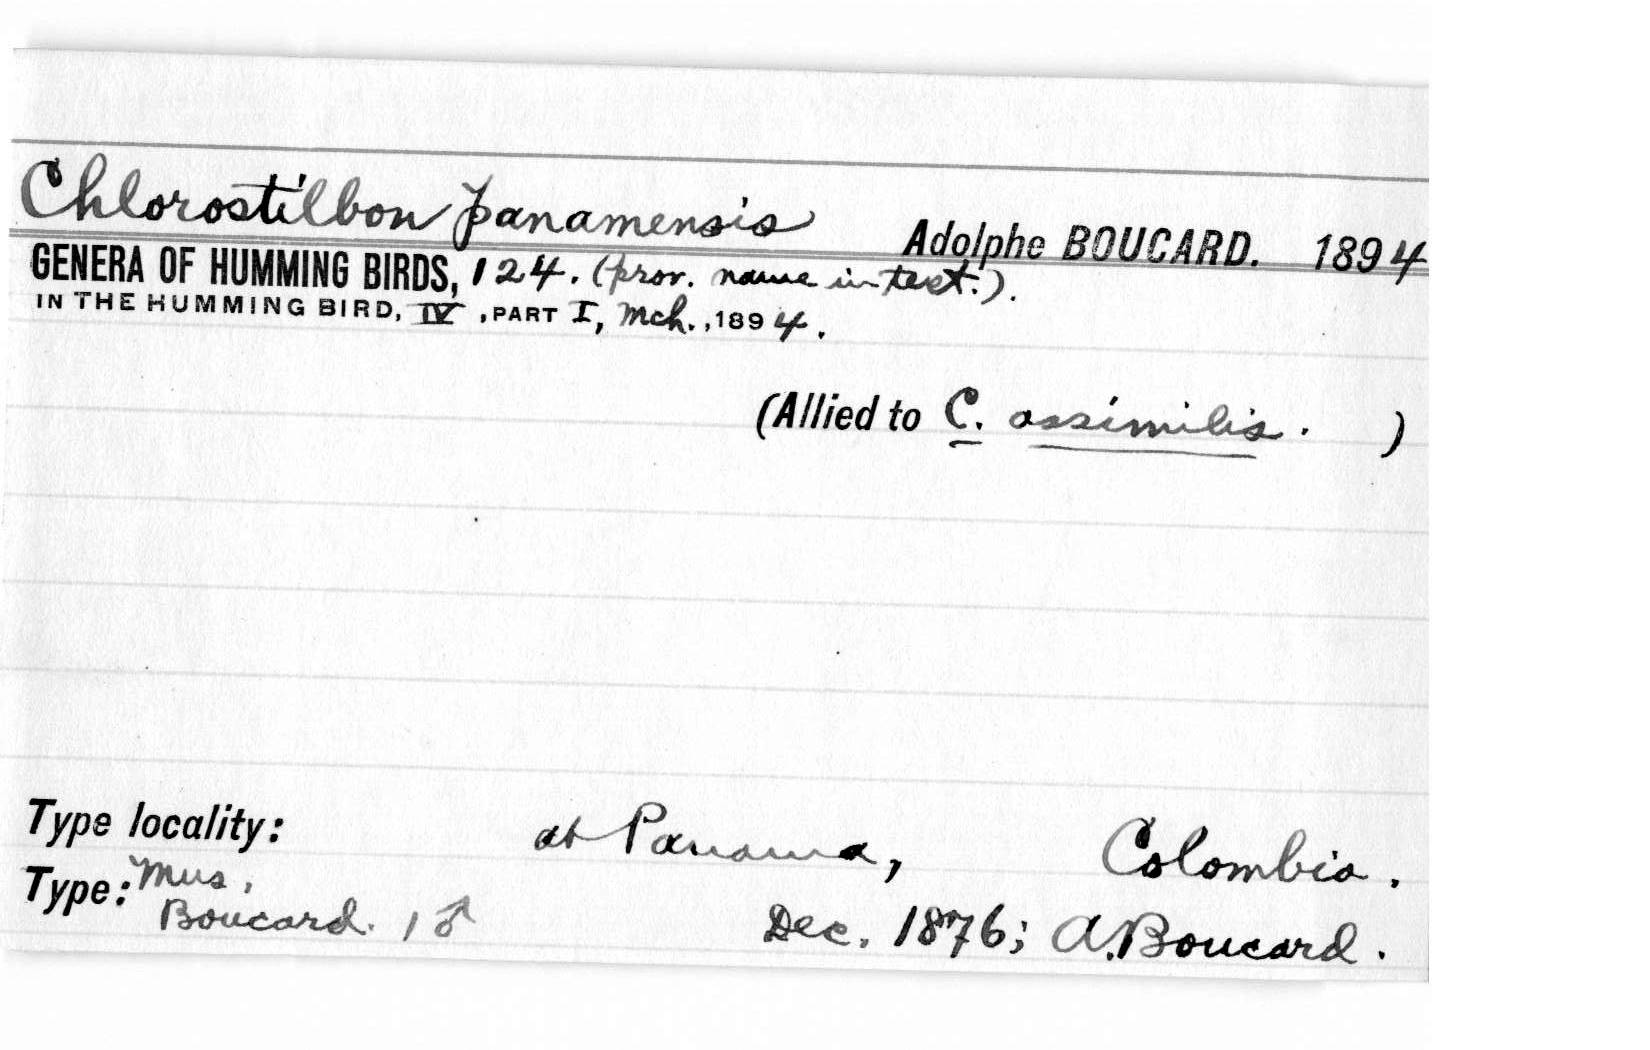 Chlorostilbon panamensis Adolphe BOUCARD. 1894
GENERA OF HUMMING BIRDS, 124. (prov. name in text.).
IN THE HUMMING BIRD, IV, PART I, Mch., 1894.
(Allied to C. assimilis. )
Type locality: at Panama, Colombia.
Type: Mus. Boucard. 1 ♂ Dec. 1876; A. Boucard.